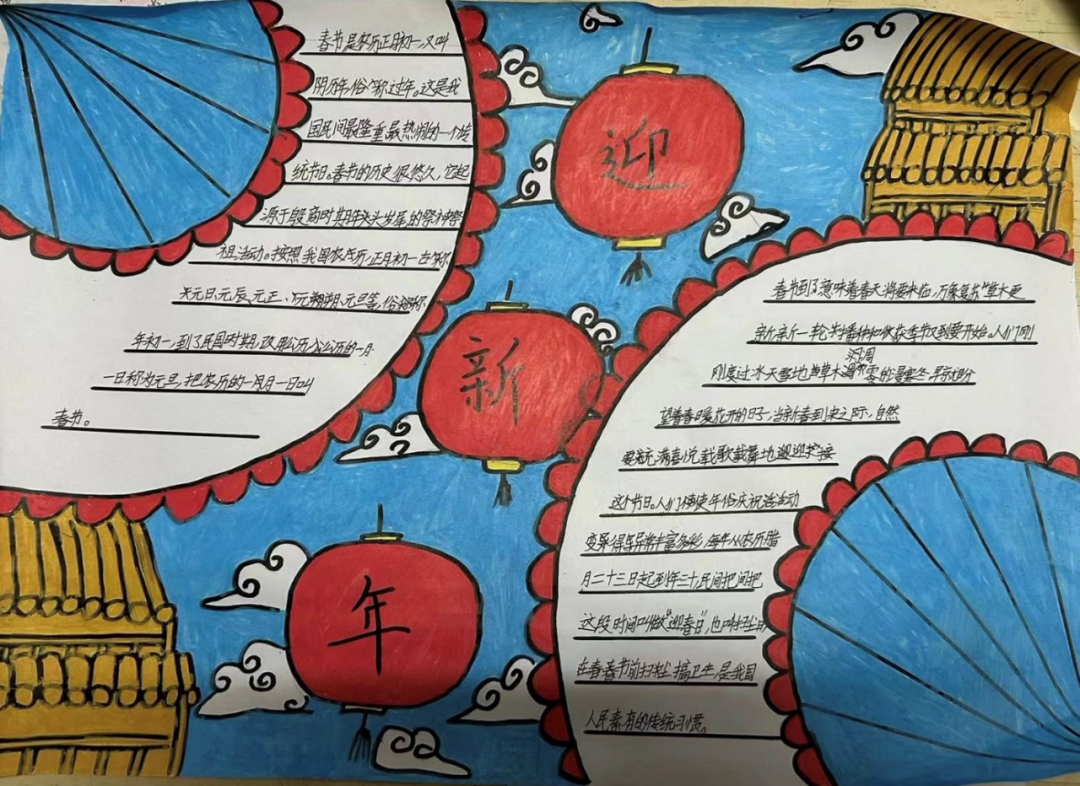 春节是农历正月初一,又叫
阴历年,俗称"过年。这是我
国民间最隆重,最热闹的一个传
统节日。春节的历史很悠久,它起
源于殷商时期年头岁尾的祭神祭
祖活动。按照我国农历,正月初一古
元日、元辰、元正、元朔、元旦等,俗称
年初一,到了民国时期,改用公历,公历的一月
一日称为元旦,把农历的一月一日叫
春节。
迎
新
年
春节到了意味着春天将要来临,万象复苏"草木更
新,新一轮播种和收获季节又到要开始。人们刚
凋
刚度过冰天雪地草木零的漫漫冬早就盼
望着春暖花开的日子,当新春到来之际,自然
要充满喜悦载歌载舞地迎接
这个节日。人们使年俗庆祝活动
变得异常丰富多彩,每年从农历腊
月二十三日起到年三十,民间把
这段时间叫做"迎春日",也叫
在春节前扫尘搞卫生,是我国
人民素有的传统习惯。